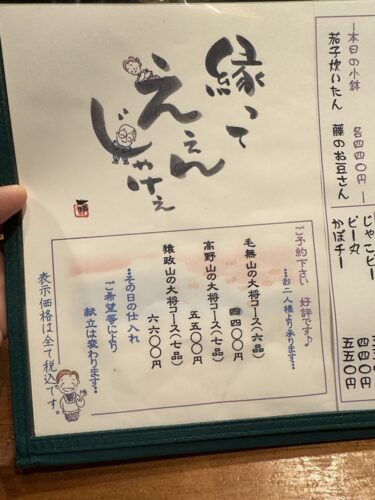 縁って
ええん
じゃけぇ
ご予約下さい 好評です♪
…お二人様より承ります…
毛無山の大将コース（六品）
四四〇〇円
高野山の大将コース（七品）
五五〇〇円
猿政山の大将コース（七品）
六六〇〇円
…その日の仕入れ
ご希望等により
献立は変わります…
表示価格は全て税込です。
本日の小鉢 各四四〇円
茄子炊いたん 藤のお豆さん
じゃこピー
ピー丸
かぼチー
四四〇円
五五〇円